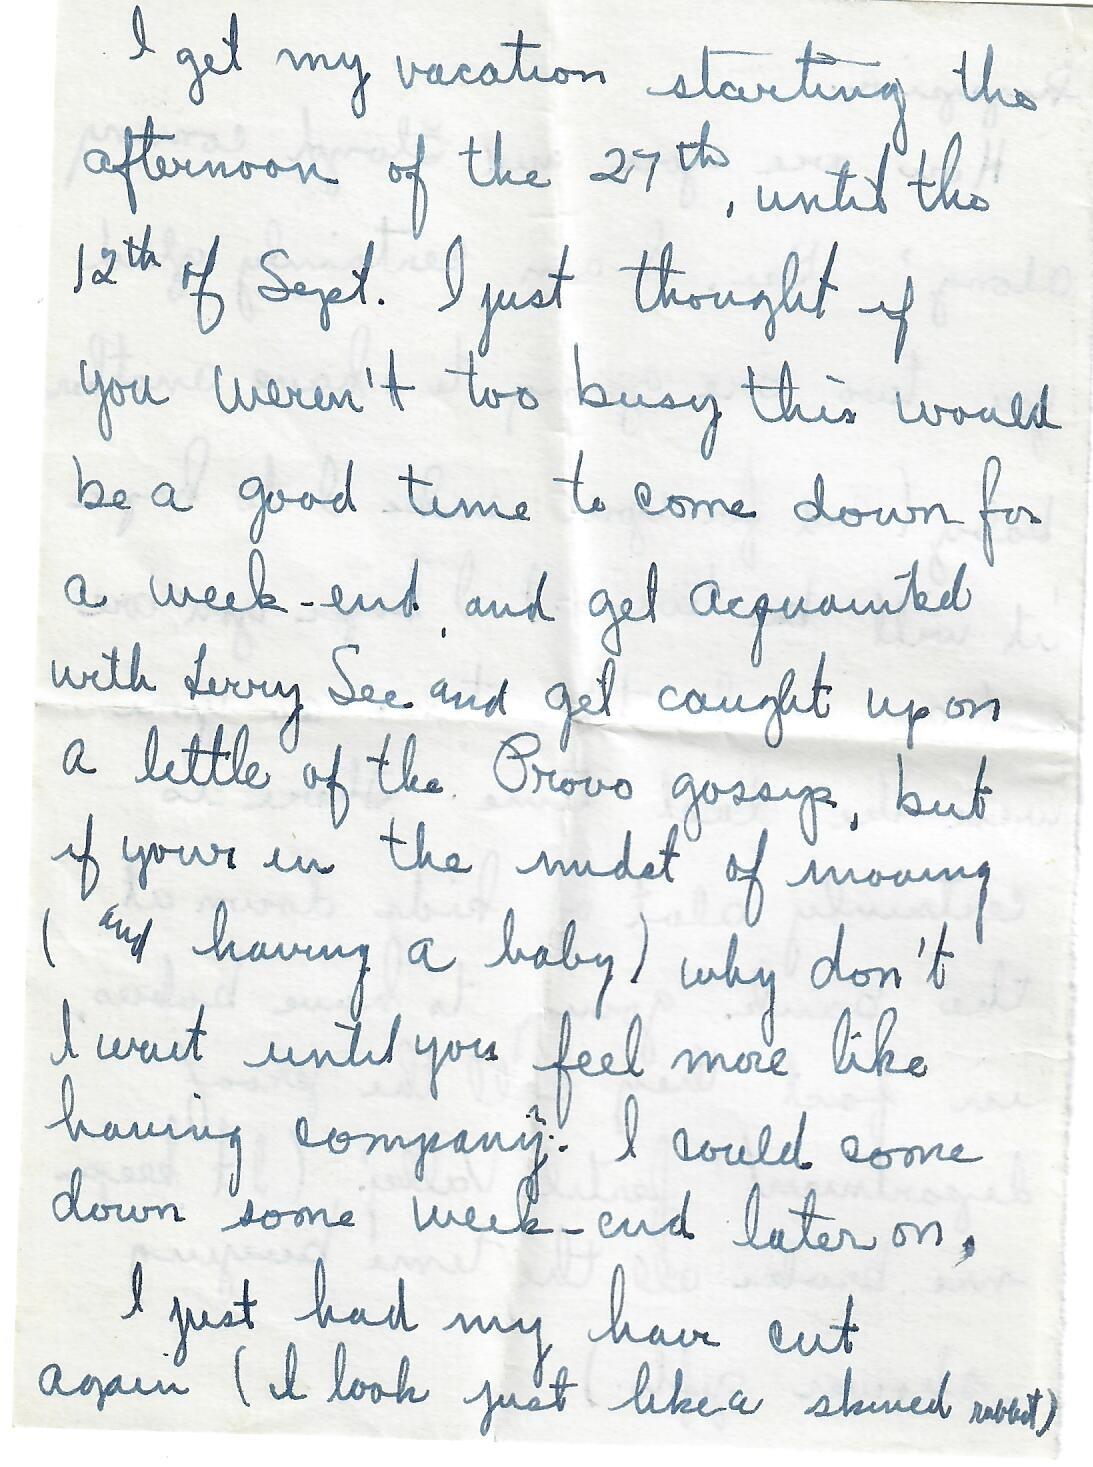 I get my vacation starting the
afternoon of the 27th, until the
12th of Sept. I just thought if
you weren't too busy this would
be a good time to come down for
a week-end, and get acquainted
with Lerry See and get caught up on
a little of the Provo gossip, but
if your in the midst of moving
(and having a baby) why don't
I wait until you feel more like
having company? I could come
down some week-end later on.
I just had my hair cut
again (I look just like a skined rabbit)